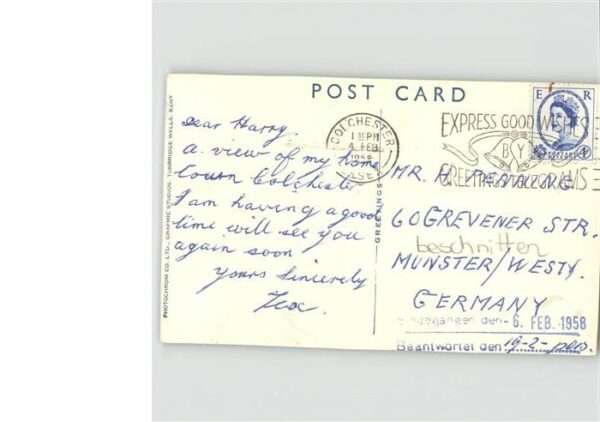 POST CARD
E R
COLCHESTER
1 PM
4 FEB
1958
ESSEX
EXPRESS GOOD WISHES
BY
GREETINGS TELEGRAMS
Dear Harry.
A view of my home
town Colchester
I am having a good
time will see you
again soon
Yours Sincerely
GREETINGS
PHOTOCHROM CO. LTD., GRAPHIC STUDIOS, TUNBRIDGE WELLS, KENT
MR. H.
60 GREVENER STR.
beschnitten
MUNSTER/WESTF.
GERMANY
Eingegangen den - 6. FEB. 1958
Beantwortet den 19-2-